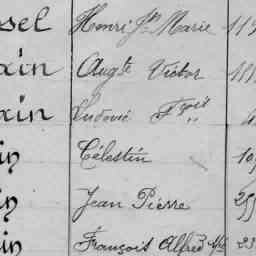 sel Henri Jh Marie 11
ain Augte Victor 111
ain Ludovic Fçois
in Célestin 10
in Jean Pierre 25
in François Alfred 23